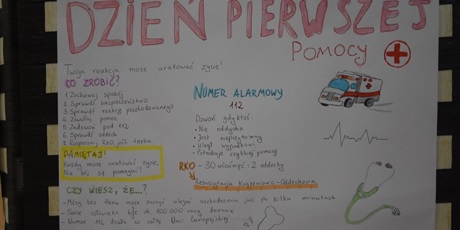 DZIEŃ PIERWSZEJ
POMOCY
Twoja reakcja może uratować życie!
CO ZROBIĆ?
1. Zachowaj spokój
2. Sprawdź bezpieczeństwo
3. Sprawdź reakcję poszkodowanego
4. Zawołaj pomoc
5. Zadzwoń pod 112
6. Sprawdź oddech
7. Rozpocznij RKO, jeśli trzeba
PAMIĘTAJ!
Każdy może uratować życie,
Nie bój się pomagać!
CZY WIESZ, ŻE...?
- Mózg bez tlenu może zacząć ulegać uszkodzeniu już po kilku minutach
- Serce człowieka bije ok. 100 000 razy dziennie
- Numer 112 działa w całej Unii Europejskiej
NUMER ALARMOWY
112
Dzwoń gdy ktoś:
• Nie oddycha
• Jest nieprzytomny
• Uległ wypadkowi
• Potrzebuje szybkiej pomocy
RKO - 30 uciśnięć : 2 oddechy
Resuscytacja Krążeniowo-Oddechowa